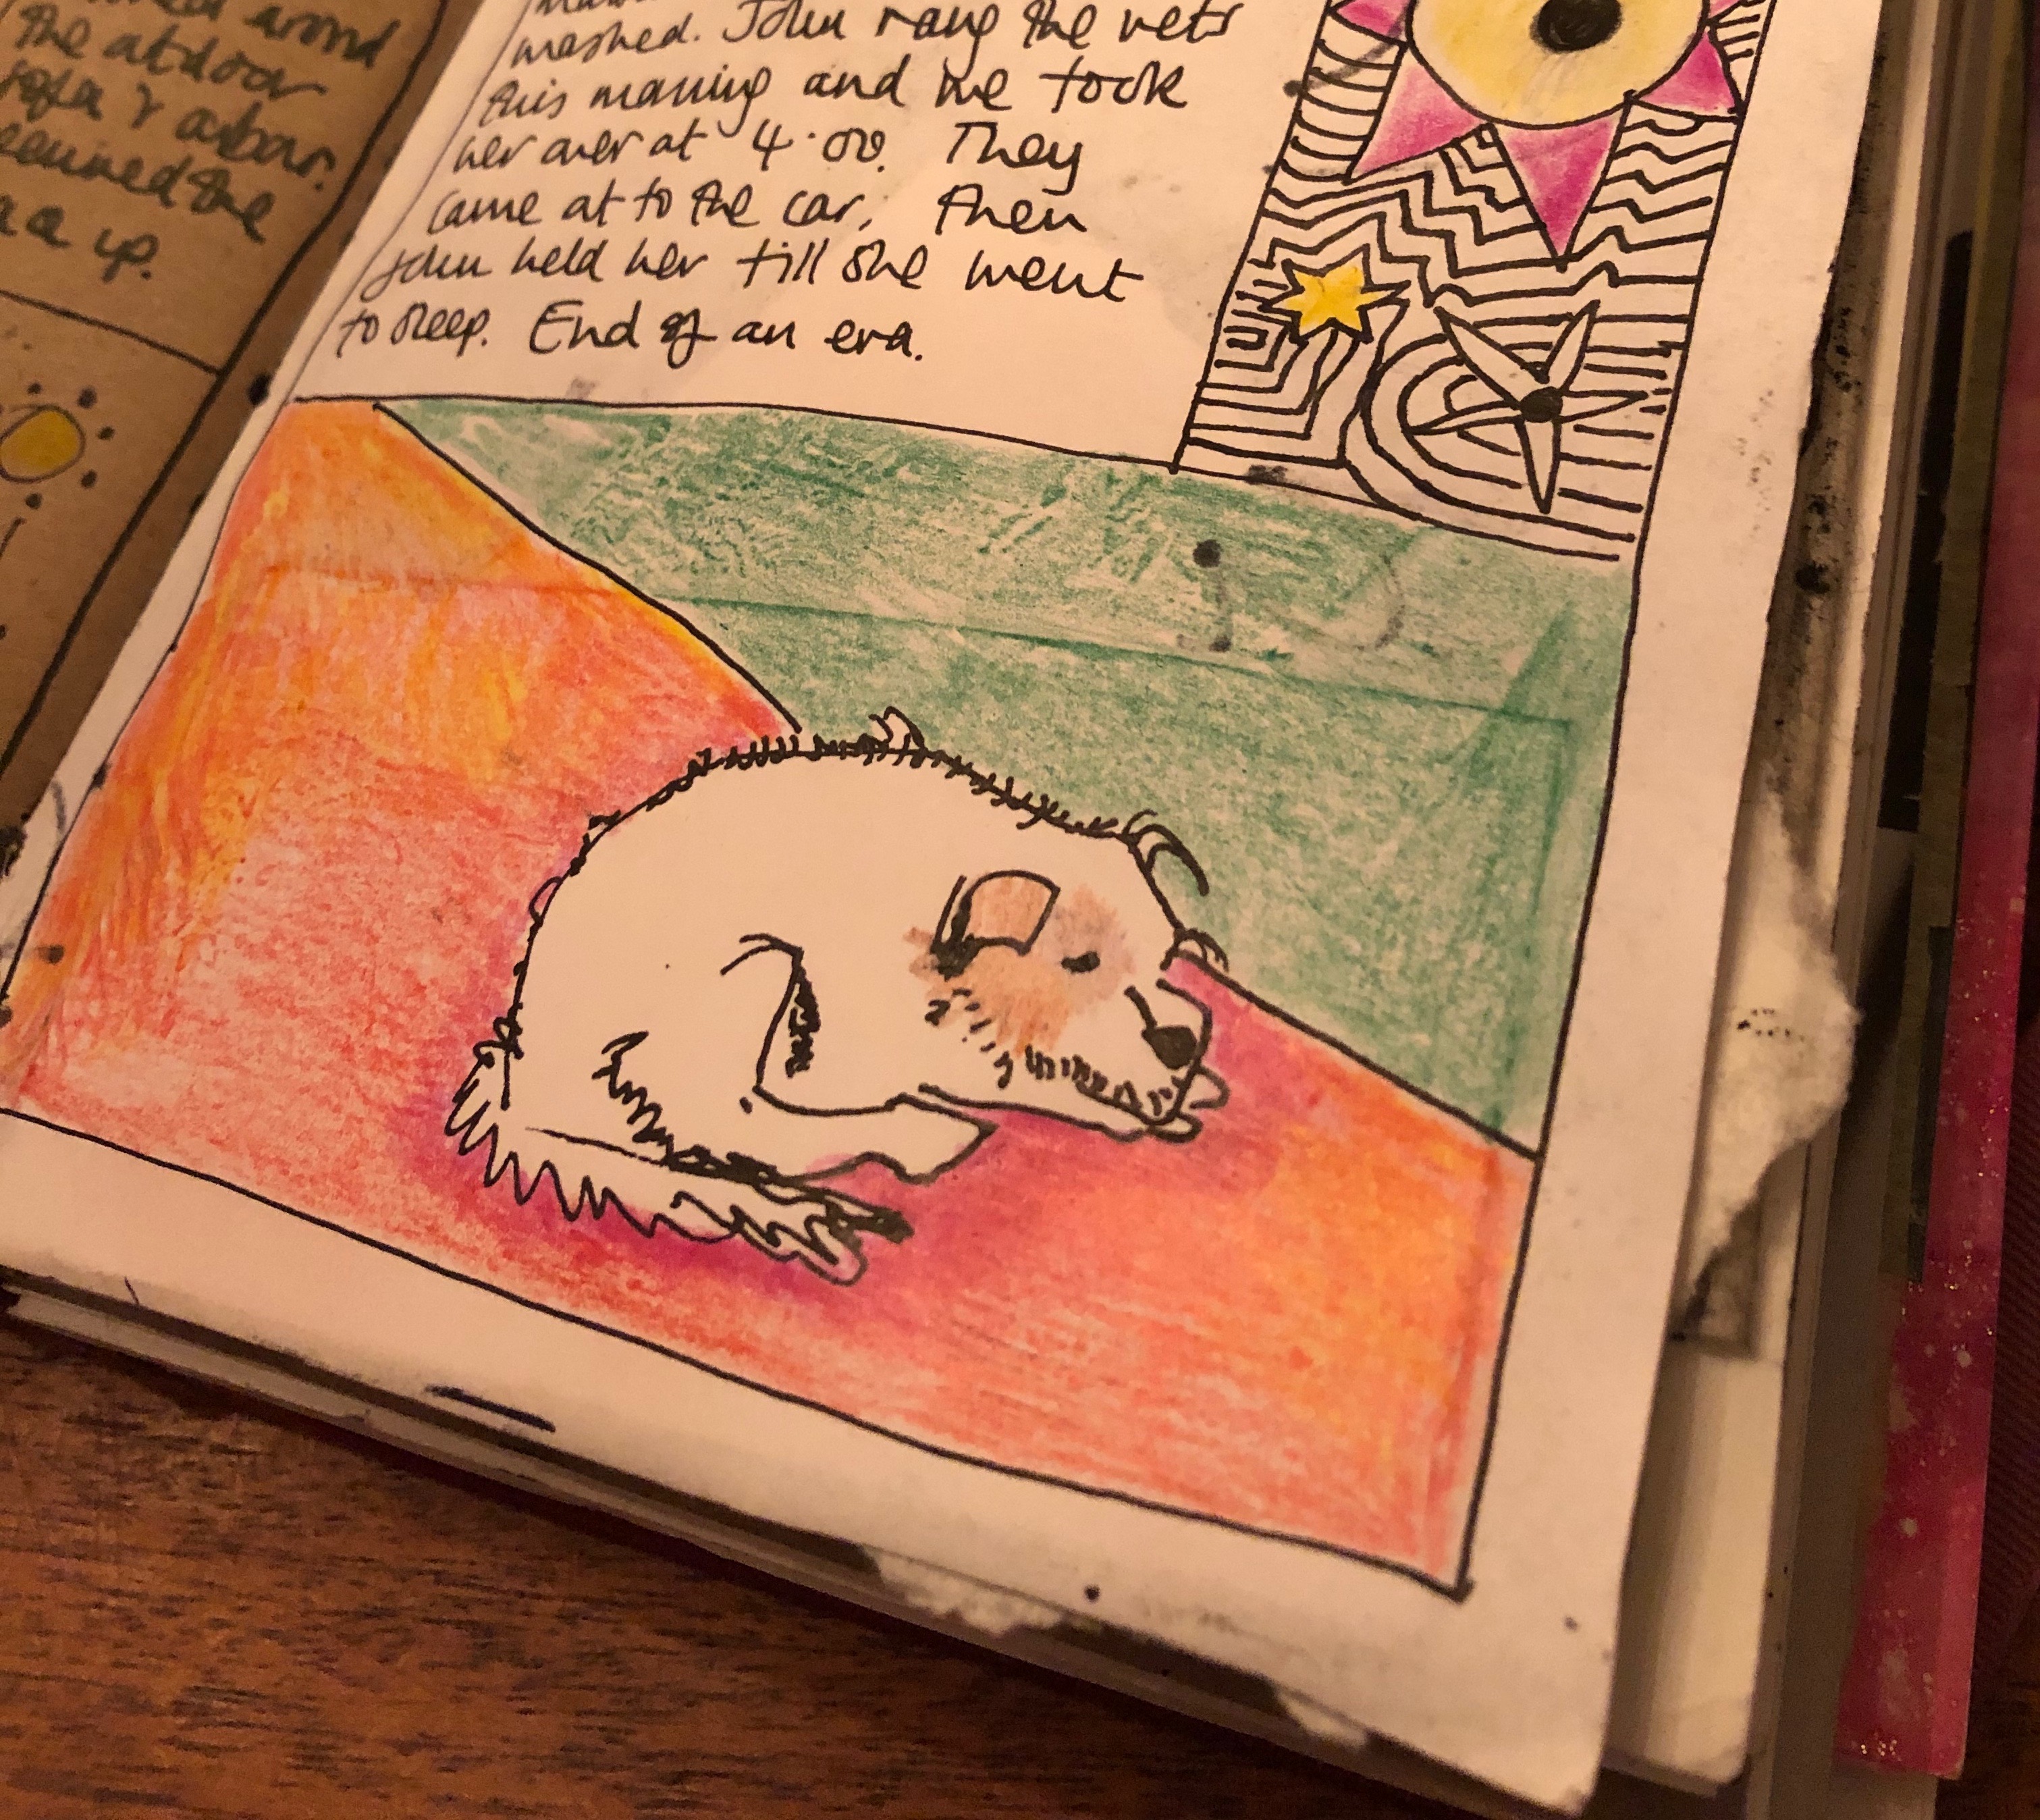 around
the outdoor
sofa & arbour.
the
up.
washed. John rang the vets
this morning and we took
her over at 4.00. They
came out to the car, then
John held her till she went
to sleep. End of an era.